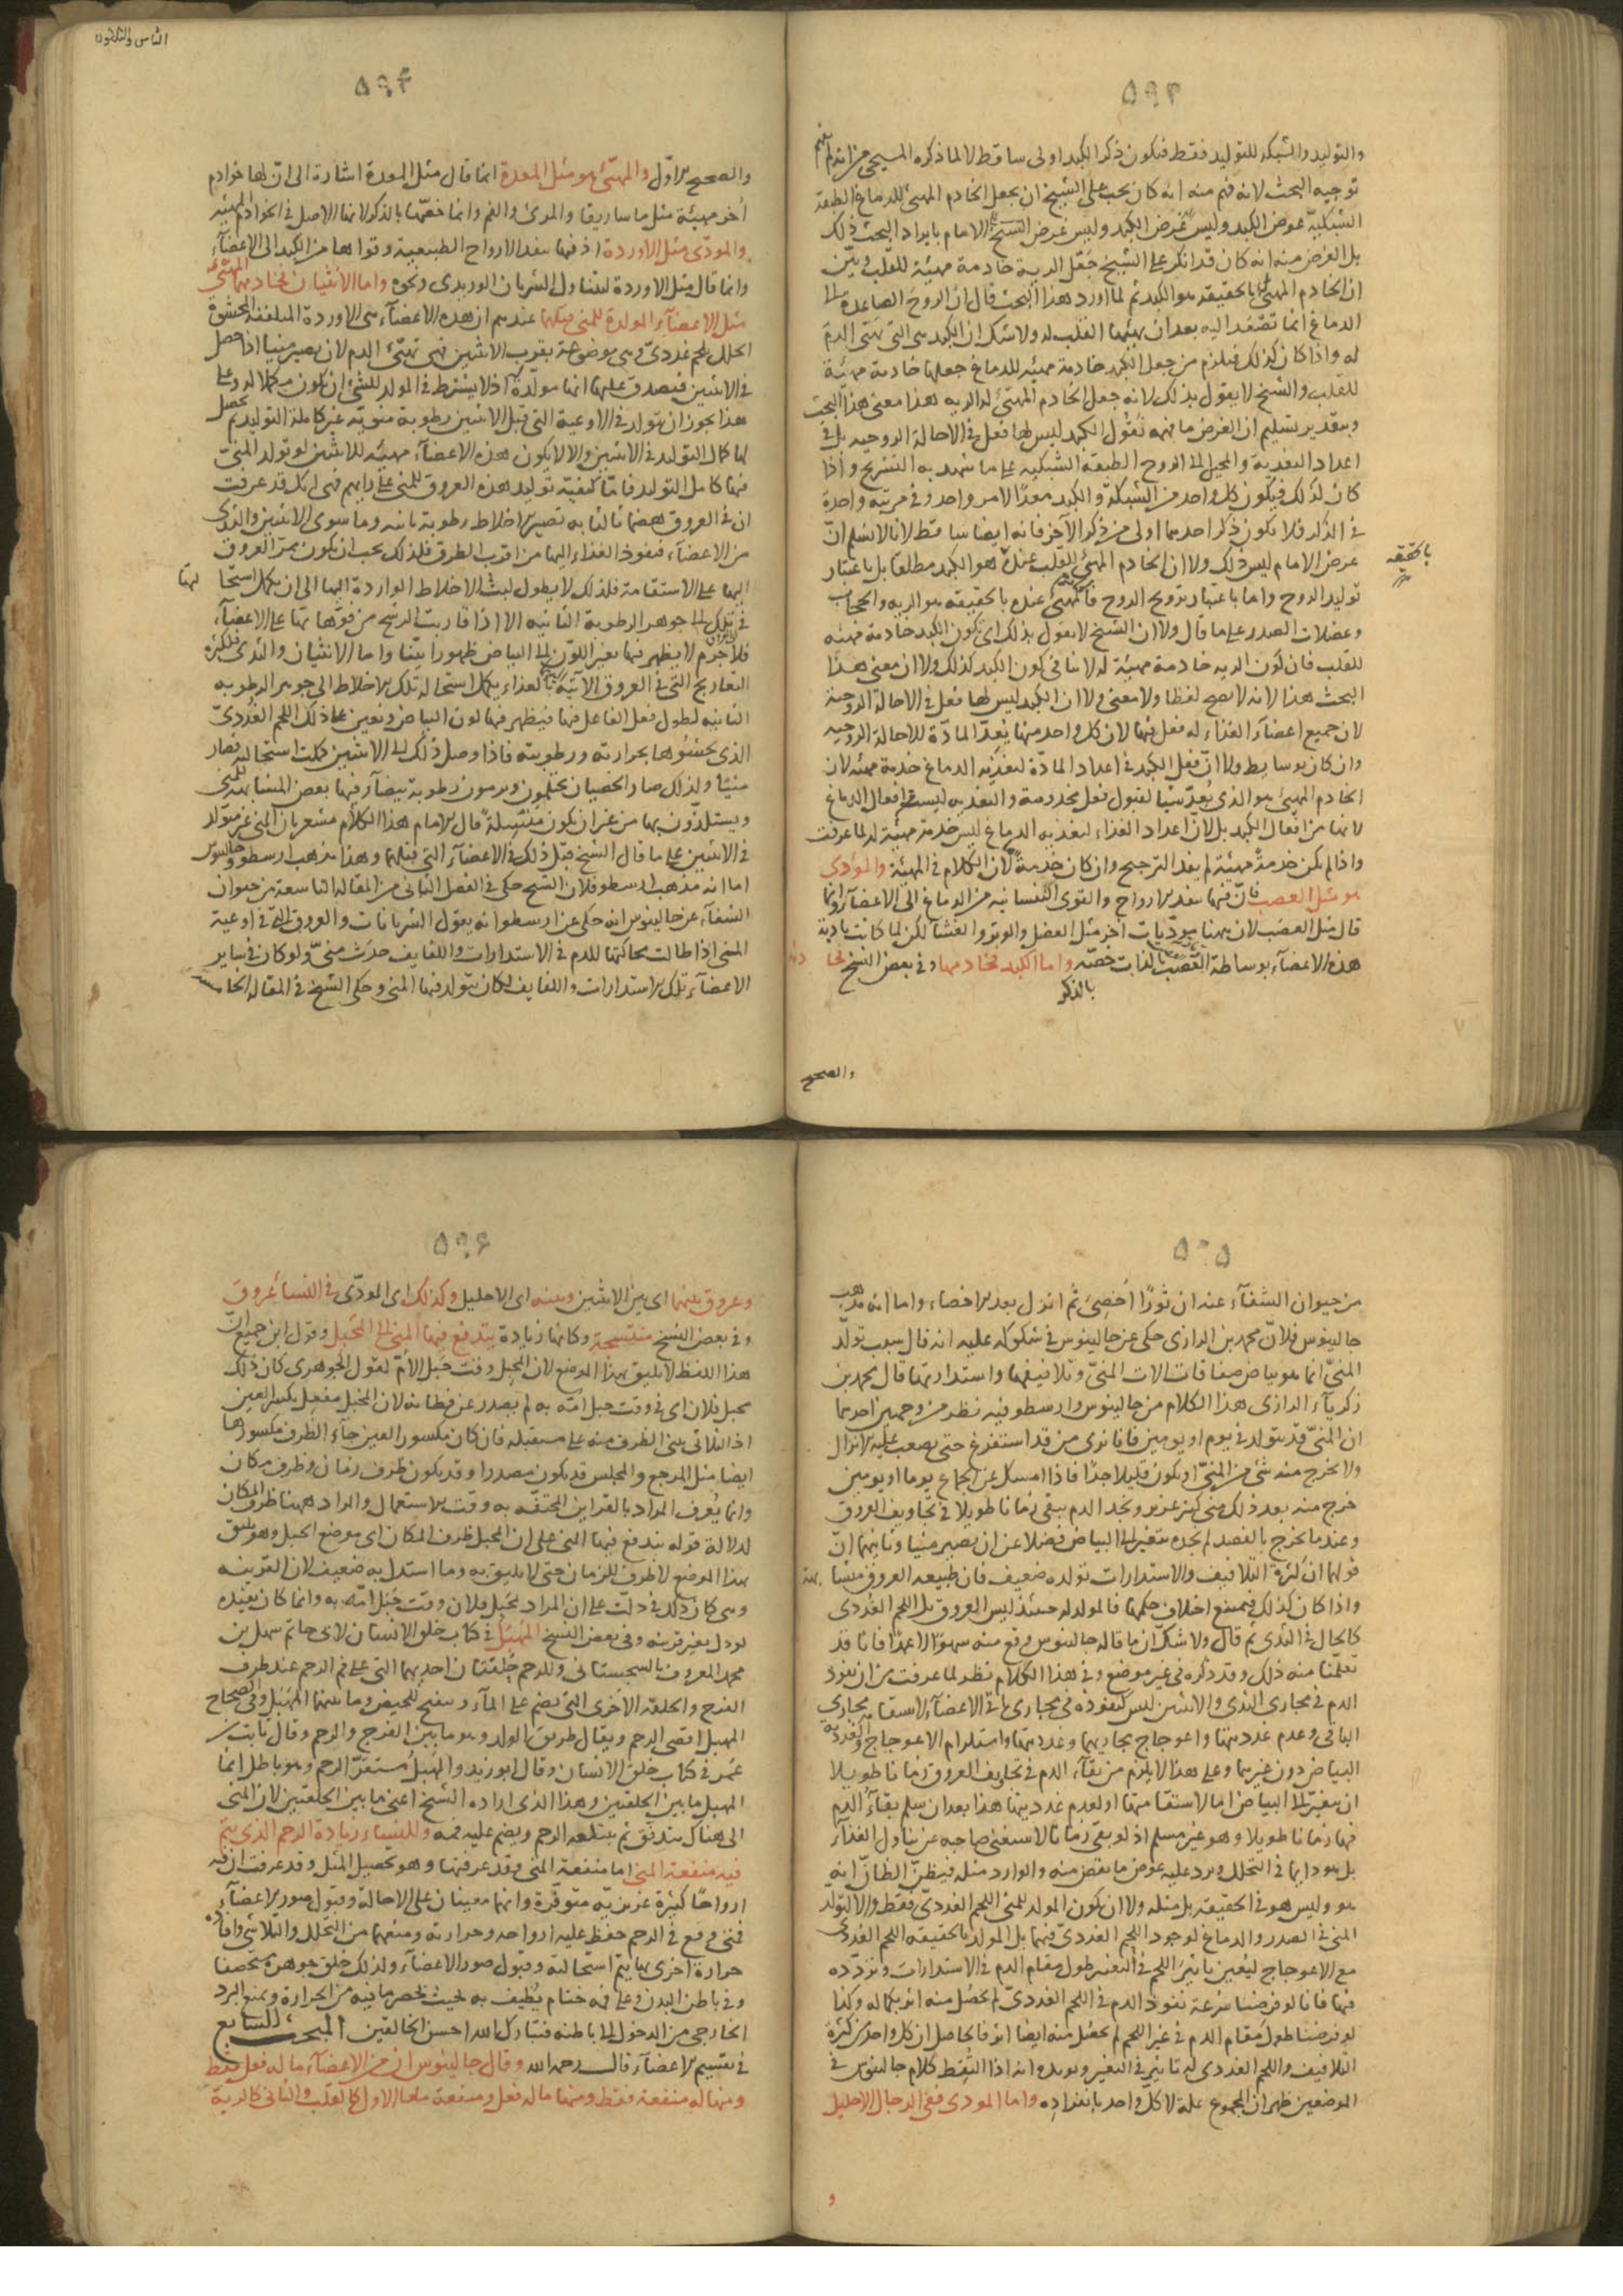 ٥٩٣
والتوليد والشبكة للتوليد فقط فيكون ذكر الكبد اولى ساقط لا لما ذكره المسيحي من انه لم يفهم
توجيه البحث لانه فهم منه انه كان يجب على الشيخ ان يجعل الخادم المهيئ للدماغ الطبقة
الشبكية عوض الكبد وليس غرض الكبد وليس غرض الامام بايراد البحث ذلك
بل الغرض منه انه كان قد انكر على الشيخ جعل الرية خادمة مهيئة للقلب وبين
ان الخادم المهيئ له بالحقيقة هو الكبد ثم لما اورد هذا البحث قال ان الروح الصاعدة الى
الدماغ انما تصعد اليه بعد ان يهيئها القلب له ولا شك ان الكبد هي التي تهيئ الدم
له واذا كان كذلك فيلزم من جعل الكبد خادمة مهيئة للدماغ جعلها خادمة مهيئة
للقلب والشيخ لا يقول بذلك لانه جعل الخادم المهيئ له الرية هذا معنى هذا البحث
وبتقدير تسليم ان الغرض ما فهمه نقول الكبد ليس لها فعل في الاحالة الروحية بل في
اعداد التغذية والمحيل الى الروح الطبقة الشبكية على ما شهد به التشريح واذا
كان كذلك فيكون كل واحد من الشبكة والكبد معدا لامر واحد وفي مرتبة واحدة
في الذكر فلا يكون ذكر احدهما اولى من ذكر الآخر فانه ايضا ساقط لانا لا نسلم ان
غرض الامام ليس ذلك ولا ان الخادم المهيئ للقلب عنده هو الكبد مطلقا بل باعتبار
بالحقيقة
توليد الروح واما باعتبار ترويح الروح فالمهيئ عنده بالحقيقة هو الرية والحجاب
وعضلات الصدر على ما قال ولا ان الشيخ لا يقول بذلك اى بكون الكبد خادمة مهيئة
للقلب فان كون الرية خادمة مهيئة له لا ينافي كون الكبد كذلك ولا ان معنى هذا
البحث هذا لانه لا يصح لفظا ولا معنى ولا ان الكبد ليس لها فعل في الاحالة الروحية
لان جميع اعضاء الغذاء له فعل فيها لان كل واحد منها يعد المادة للاحالة الروحية
وان كان بوسايط ولا ان فعل الكبد في اعداد المادة لتغذية الدماغ خدمة مهيئة لان
الخادم المهيئ هو الذي يعد شيئا لقبول فعل مخدومه والتغذية ليست من افعال الدماغ
لانها من افعال الكبد بل لان اعداد الغذاء لتغذية الدماغ ليس خدمة مهيئة له لما عرفت
واذا لم يكن خدمة مهيئة لم يفد الترجيح وان كان خدمة لان الكلام في المهيئة والمؤدى
هو مثل العصب فان فيها تنفذ الارواح والقوى النفسانية من الدماغ الى الاعضاء وانما
قال مثل العصب لان ههنا مؤديات اخر مثل العضل والوتر والغشاء لكن لما كانت تادية
هذه الاعضاء بوساطة العصب لذات خصه واما الكبد فخادمها وفي بعض النسخ فخا دمه
بالذكر
والصحيح
الثامن والثلاثون
٥٩٤
والصحيح الاول والمهيئ هو مثل المعدة انما قال مثل المعدة اشارة الى ان لها خوادم
اخر مهيئة مثل ماساريقا والمرئ والفم وانما خصها بالذكر لانها الاصل في الخوادم المهيئة
والمؤدى مثل الاوردة اذ فيها تنفذ الارواح الطبيعية وقواها من الكبد الى الاعضاء
وانما قال مثل الاوردة ليتناول الشريان الوريدى ونحوه واما الانثيان فخادمهما المهيئ
مثل الاعضاء المولدة للمنى قبلهما عندهم ان هذه الاعضاء هي الاوردة الملتفة المحشوة
الخلل بلحم غددى وهي موضوعة بقرب الانثيين فهي تهيئ الدم لان يصير منيا اذا حصل
في الانثيين فيصدق عليها انها مولدة اذ لا يشترط في المولد للشئ ان يكون مكملا له وعلى
هذا يجوز ان يتولد في الاوعية التي قبل الانثيين رطوبة منوية غير كاملة التوليد ثم يحصل
لها كمال التوليد في الانثيين والا لا يكون هذه الاعضاء مهيئة للانثيين لو تولد المنى
فيها كامل التوليد فاما كيفية توليد هذه العروق للمنى على رايهم فهي انك قد عرفت
ان في العروق هضما ثالثا به تصير الاخلاط رطوبة ثانية وما سوى الانثيين والثدى
من الاعضاء فنفوذ الغذاء اليها من اقرب الطرق فلذلك يجب ان يكون ممر العروق
اليها على الاستقامة فلذلك لا يطول لبث الاخلاط الواردة اليها الى ان يكمل استحا لتها
في تلك الى جوهر الرطوبة الثانية الا اذا قاربت الترشح من فوهاتها على الاعضاء
فلا جرم لا يظهر فيها تغير اللون الى البياض ظهورا بينا واما الانثيان والثدى فلكثرة
التعاريج التي في العروق الآتية بالغذاء يكمل استحالة تلك الاخلاط الى جوهر الرطوبة
الثانية لطول فعل الفاعل فيها فيظهر فيها لون البياض ويعين على ذلك اللحم الغددى
الذي يحشوها بحرارته ورطوبته فاذا وصل ذلك الى الانثيين كملت استحالته فصار
منيا ولذلك صار الخصيان يحتلمون ويرمون رطوبة بيضاء فيها بعض المشابهة للمنى
ويستلذون بها من غير ان يكون منسلة قال الامام هذا الكلام مشعر بان المنى غير متولد
في الانثيين على ما قال الشيخ قبل ذلك في الاعضاء التي قبلهما وهذا مذهب ارسطو وجالينوس
اما انه مذهب ارسطو فلان الشيخ حكى في الفصل الثاني من المقالة التاسعة من حيوان
الشفاء عن جالينوس انه حكى عن ارسطو انه يقول الشريانات والعروق التي في اوعية
المنى اذا طالت محاكتها للدم في الاستدارات واللفايف حدث منى ولو كان في ساير
الاعضاء تلك الاستدارات واللفايف لكان يتولد فيها المنى وحكى الشيخ في المقالة الخامسة
٥٩٥
من حيوان الشفاء عنه ان ثورا اخصي ثم انزل بعد الاخصاء واما انه مذهب
جالينوس فلان محمد بن الرازى حكى عن جالينوس في شكوكه عليه انه قال سبب تولد
المنى انما هو بياض صفاقات الات المنى وتلافيفها واستدارتها قال محمد بن
زكرياء الرازى هذا الكلام من جالينوس وارسطو فيه نظر من وجهين احدهما
ان المنى قد يتولد في يوم او يومين فانا نرى من قد استفرغ حتى يصعب عليه الانزال
ولا يخرج منه شئ من المنى او يكون قليلا جدا فاذا امسك عن الجماع يوما او يومين
خرج منه بعد ذلك منى كثير غزير ونجد الدم يبقى زمانا طويلا في تجاويف العروق
وعندما يخرج بالفصد لم نجده متغيرا الى البياض فضلا عن ان يصير منيا وثانيهما ان
قولهما ان كثرة التلافيف والاستدارات تولده ضعيف فان طبيعة العروق متشا بهة
واذا كان كذلك فيمتنع اختلاف حكمها فالمولد له حينئذ ليس العروق بل اللحم الغددى
كالحال في الثدى ثم قال ولا شك ان ما قاله جالينوس وقع منه سهوا لا عمدا فانا قد
تعلمنا منه ذلك وقد ذكره في غير موضع وفي هذا الكلام نظر لما عرفت من ان نفوذ
الدم في مجارى الثدى والانثيين ليس كنفوذه في مجارى باقي الاعضاء لاستقامة مجارى
الباقى وعدم غدديتها واعوجاج مجاريهما وغدديتهما واستلزام الاعوجاج والغددية
البياض دون غيرهما وعلى هذا لا يلزم من بقاء الدم في تجاويف العروق زمانا طويلا
ان يتغير الى البياض اما لاستقامتها او لعدم غدديتها هذا بعد ان يسلم بقاء الدم
فيها زمانا طويلا وهو غير مسلم اذ لو بقى زمانا لاستغنى صاحبه عن تناول الغذاء
بل هو دايما في التحلل ويرد عليه عوض ما نقص منه والوارد مثله فيظن الظان انه
هو وليس هو في الحقيقة بل مثله ولا ان يكون المولد للمنى اللحم الغددى فقط والا لتولد
المنى في الصدر والدماغ لوجود اللحم الغددى فيهما بل المولد بالحقيقة اللحم الغددى
مع الاعوجاج ليعين تاثير اللحم في التغير طول مقام الدم في الاستدارات وتردده
فيها فانا لو فرضنا سرعة نفوذ الدم في اللحم الغددى لم يحصل منه اثر بكماله وكذا
لو فرضنا طول مقام الدم في غير اللحم لم يحصل منه ايضا اثر فالحاصل ان كل واحد من كثرة
التلافيف واللحم الغددى له تاثير في التغير ويؤيده انه اذا التقط كلام جالينوس في
الموضعين ظهر ان المجموع علة لا كل واحد بانفراده واما المودى ففي الرجال الاحليل
و
٥٩٦
وعروق بينهما اى بين الانثيين وبينه اى الاحليل وكذلك اى المودى في النساء عروق
وفي بعض النسخ منتسجة وكانها زيادة يندفع فيها المنى الى المحبل وقول ابن جميع ان
هذا اللفظ لا يليق بهذا الموضع لان المحبل وقت حبل الام لقول الجوهرى كان ذلك
بمحبل فلان اى في وقت حبل امه به لم يصدر عن فطانة لان المحبل مفعل بكسر العين
اذ الثلاثى يبنى الظرف منه على مستقبله فان كان مكسور العين جاء الظرف مكسورها
ايضا مثل المرجع والمجلس قد يكون مصدرا وقد يكون ظرف زمان وظرف مكان
وانما يعرف المراد بالقراين المحتفة به وقت الاستعمال والمراد ههنا ظرف المكان
لدلالة قوله يندفع فيها المنى على ان المحبل ظرف المكان اى موضع الحبل وهو يليق
بهذا الموضع لا ظرف للزمان حتى لا يليق به وما استدل به ضعيف لان القرينة
وهي كان ذلك في دلت على ان المراد بمحبل فلان وقت حبل امه به وانما كان يفيده
لو دل بغير قرينة وفي بعض النسخ المهبل في كتاب خلق الانسان لابى حاتم سهل بن
محمد المعروف بالسجستانى وللرحم حلقتان احديهما التي على فم الرحم عند طرف
الفرج والحلقة الاخرى التي تضم على الماء وتنفتح للحيض وما بينهما المهبل وفي الصحاح
المهبل اقصى الرحم ويقال طريق الولد وهو ما بين الفرج والرحم وقال ثابت بن
عمر في كتاب خلق الانسان وقال ابو زيد والمهبل مستقر الرحم وهو باطل انما
المهبل ما بين الحلقتين وهذا الذي اراده الشيخ اعنى ما بين الحلقتين لان المنى
الى هناك يندفق ثم يبتلعه الرحم ويضم عليه فمه وللنساء زيادة الرحم الذي يتم
فيه منفعة المنى اما منفعة المنى فقد عرفتها وهو تحصيل المثل وقد عرفت ان فيه
ارواحا كثيرة غريزية متوفرة وانها معينان على الاحالة وقبول صور الاعضاء
فمتى وقع في الرحم حفظ عليه ارواحه وحرارته ومنعهما من التحلل والتلاشى وافاده
حرارة اخرى بها يتم استحالته وقبول صور الاعضاء ولذلك خلق جوهره مستحصفا
وفي باطن البدن وعلى فمه ختام يطيف به بحيث يحصر ما فيه من الحرارة ويمنع البرد
الخارجى من الدخول الى باطنه فتبارك الله احسن الخالقين المبحث السابع
في تقسيم الاعضاء قال رحمه الله وقال جالينوس ان من الاعضاء ما له فعل فقط
ومنها له منفعة فقط ومنها ما له فعل ومنفعة معا الاول كالقلب والثانى كالرية